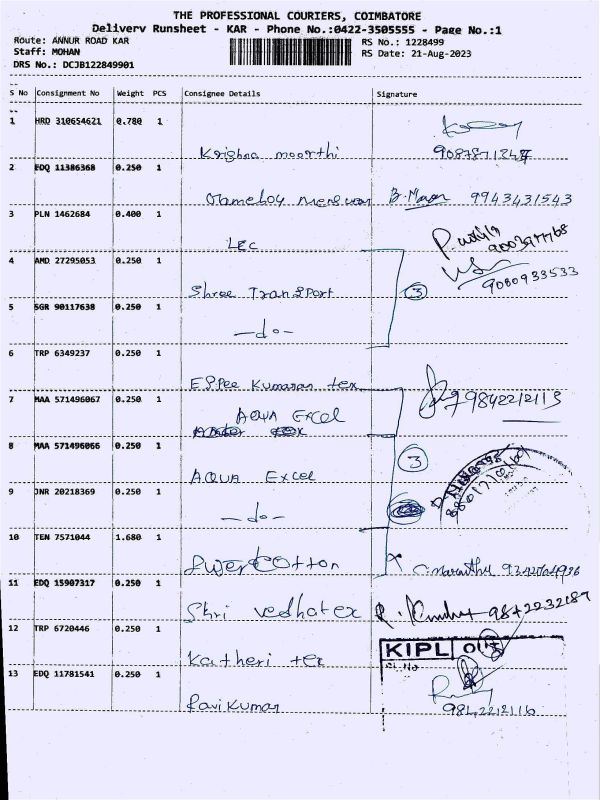 THE PROFESSIONAL COURIERS, COIMBATORE
Delivery Runsheet - KAR - Phone No.:0422-3505555 - Page No.:1
Route: ANNUR ROAD KAR
RS No.: 1228499
Staff: MOHAN
RS Date: 21-Aug-2023
DRS No.: DCJB122849901
S No Consignment No Weight PCS Consignee Details Signature
1 HRD 310654621 0.780 1
Krishna moorthi
2 EDQ 11386368 0.250 1
B. 9943431543
3 PLN 1462684 0.400 1
LEC
4 AMD 27295053 0.250 1
Shree Transport 3 9080933533
5 SGR 90117638 0.250 1
-do-
6 TRP 6349237 0.250 1
ESPee Kumaran tex
7 MAA 571496067 0.250 1 9842212113
AQUA EXCEL
8 MAA 571496066 0.250 1 3
AQUA EXCEL
9 JNR 20218369 0.250 1
-do-
10 TEN 7571044 1.680 1
Cotton
11 EDQ 15907317 0.250 1
Shri vedhatex R. 9842232187
12 TRP 6720446 0.250 1
KIPL
Katheri tex
13 EDQ 11781541 0.250 1
Ravi Kumar